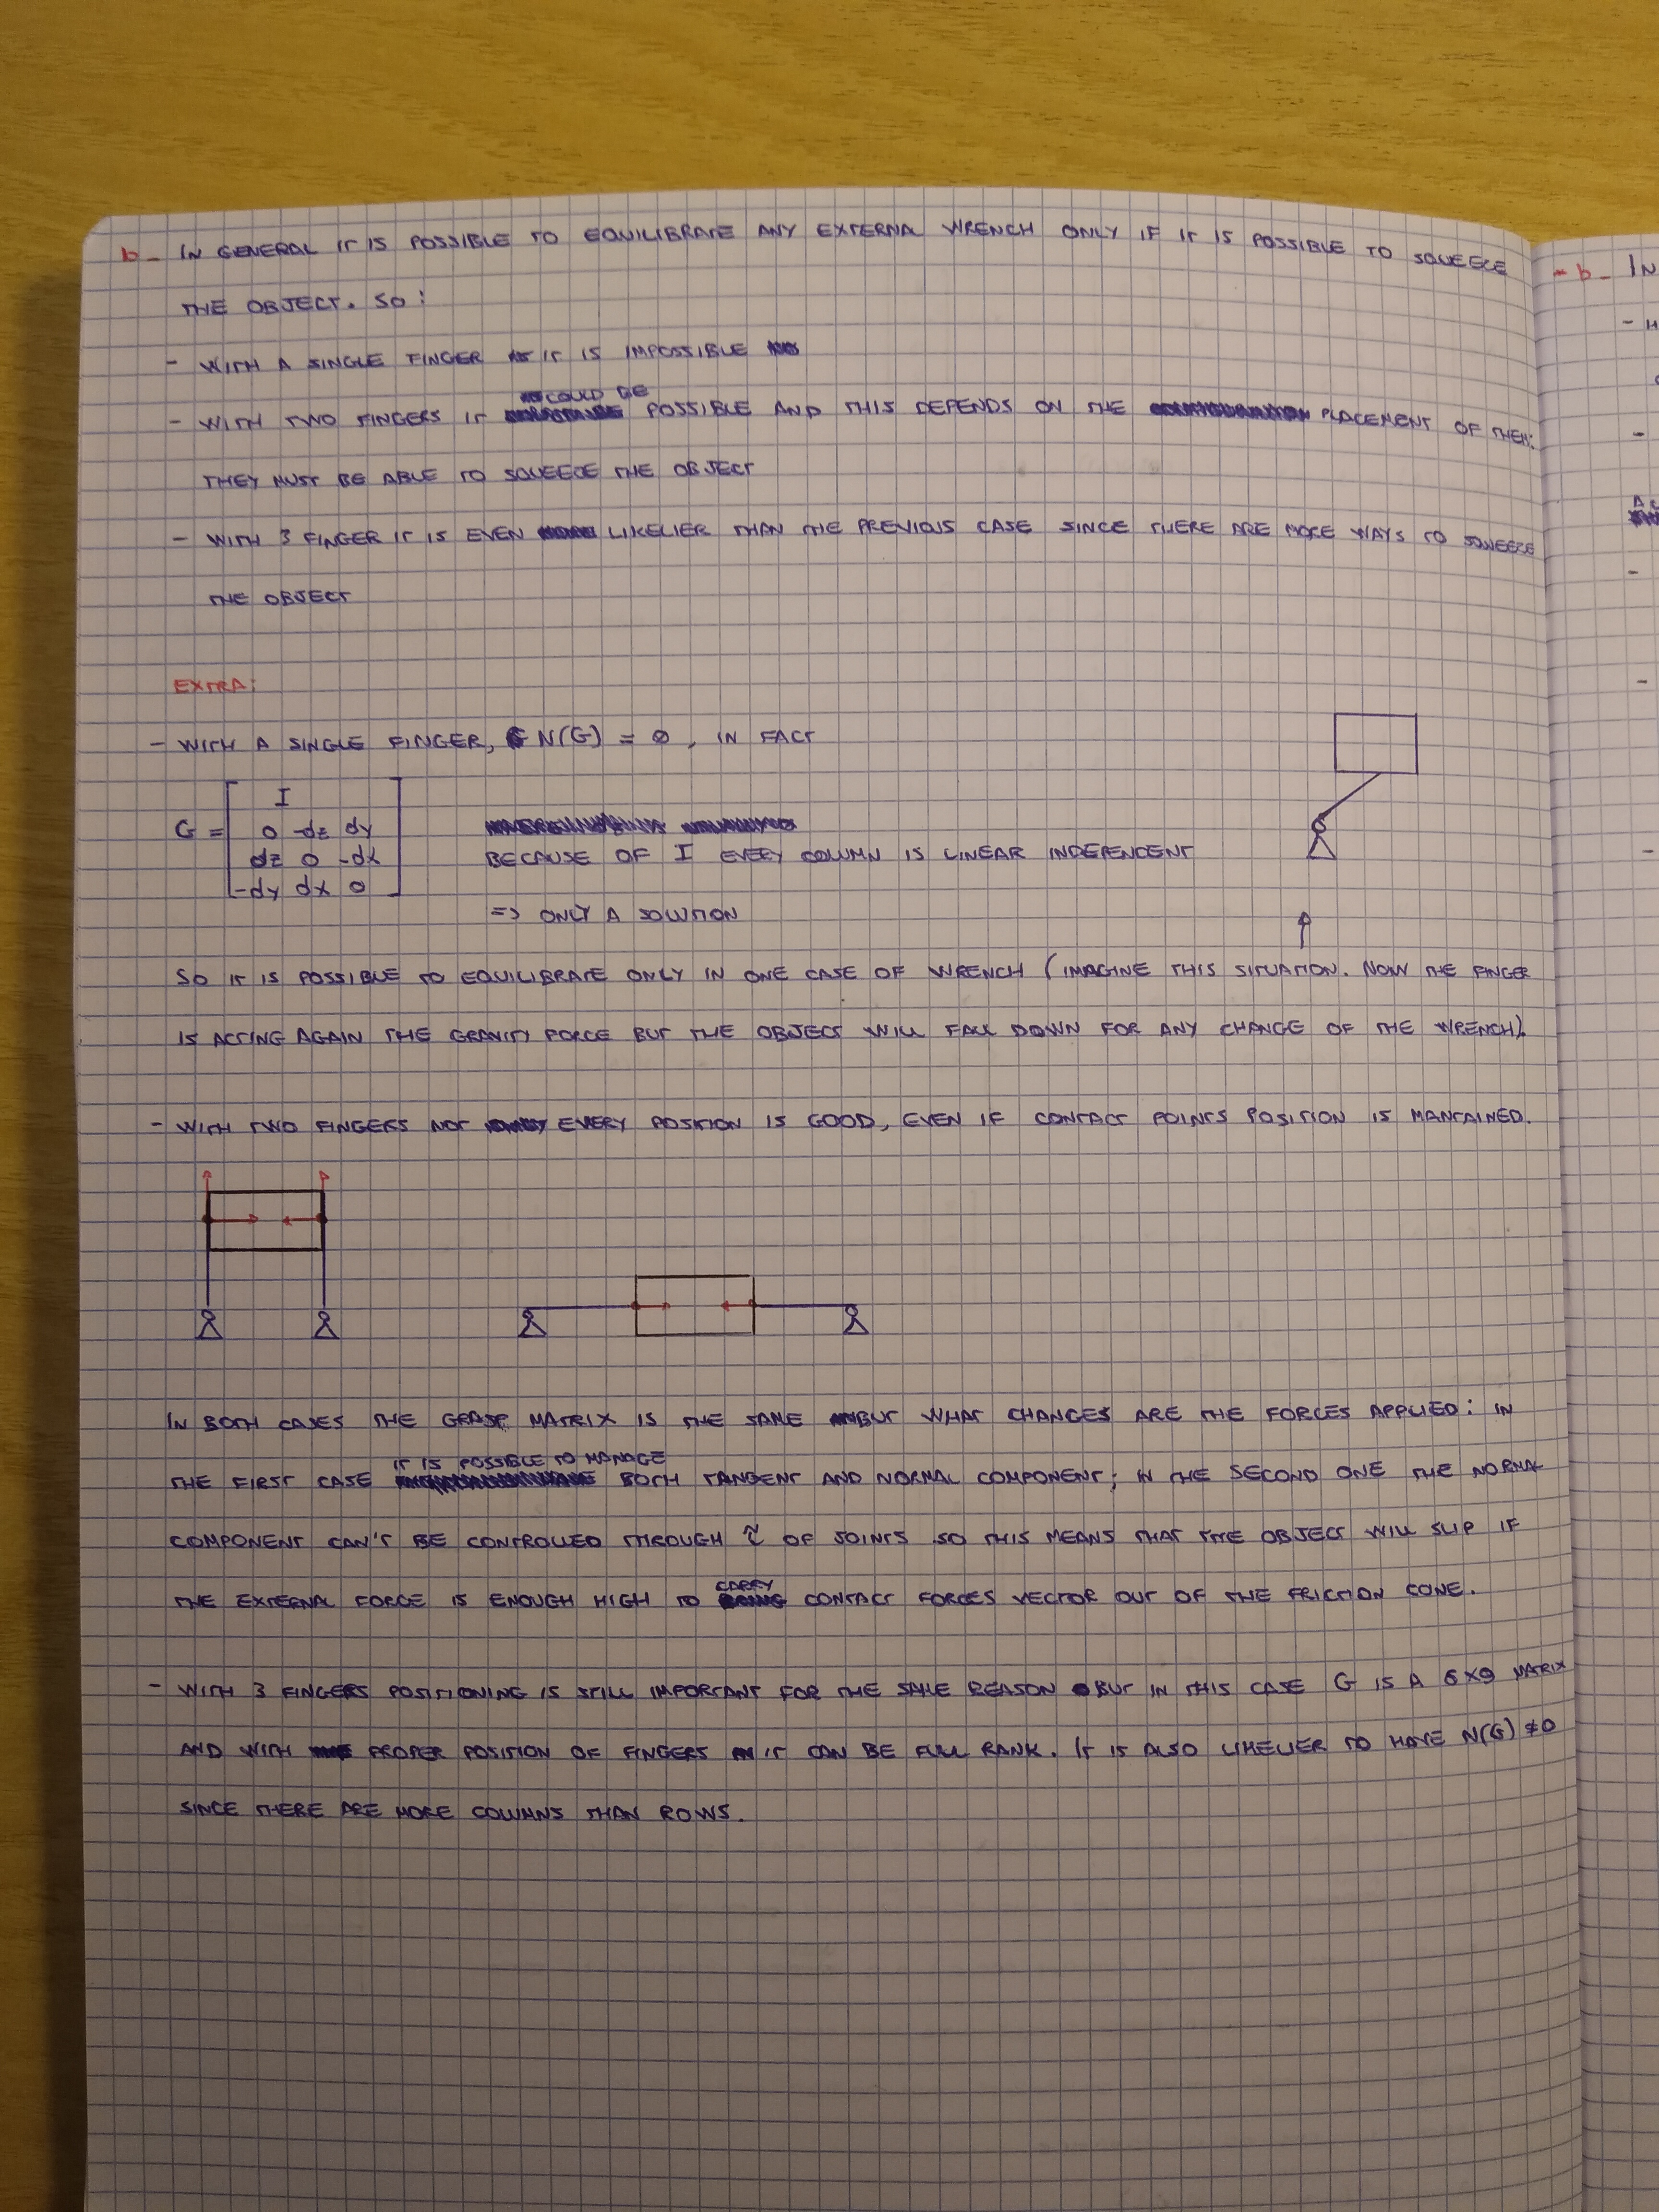 b- IN GENERAL IT IS POSSIBLE TO EQUILIBRATE ANY EXTERNAL WRENCH ONLY IF IT IS POSSIBLE TO SQUEEZE
THE OBJECT. SO:
- WITH A SINGLE FINGER IT IS IMPOSSIBLE
COULD BE
- WITH TWO FINGERS IT POSSIBLE AND THIS DEPENDS ON THE PLACEMENT OF THEM:
THEY MUST BE ABLE TO SQUEEZE THE OBJECT
- WITH 3 FINGER IT IS EVEN LIKELIER THAN THE PREVIOUS CASE SINCE THERE ARE MORE WAYS TO SQUEEZE
THE OBJECT
EXTRA:
- WITH A SINGLE FINGER, N(G) = ∅, IN FACT
I
G = 0 -dz dy
dz 0 -dx
-dy dx 0
BECAUSE OF I EVERY COLUMN IS LINEAR INDEPENDENT
=> ONLY A SOLUTION
SO IT IS POSSIBLE TO EQUILIBRATE ONLY IN ONE CASE OF WRENCH (IMAGINE THIS SITUATION. NOW THE FINGER
IS ACTING AGAIN THE GRAVITY FORCE BUT THE OBJECT WILL FALL DOWN FOR ANY CHANGE OF THE WRENCH).
- WITH TWO FINGERS NOT EVERY POSITION IS GOOD, EVEN IF CONTACT POINTS POSITION IS MANTAINED.
IN BOTH CASES THE GRASP MATRIX IS THE SAME BUT WHAT CHANGES ARE THE FORCES APPLIED: IN
IT IS POSSIBLE TO MANAGE
THE FIRST CASE BOTH TANGENT AND NORMAL COMPONENT; IN THE SECOND ONE THE NORMAL
COMPONENT CAN'T BE CONTROLLED THROUGH τ OF JOINTS SO THIS MEANS THAT THE OBJECT WILL SLIP IF
CARRY
THE EXTERNAL FORCE IS ENOUGH HIGH TO CONTACT FORCES VECTOR OUT OF THE FRICTION CONE.
- WITH 3 FINGERS POSITIONING IS STILL IMPORTANT FOR THE SAME REASON BUT IN THIS CASE G IS A 6X9 MATRIX
AND WITH PROPER POSITION OF FINGERS IT CAN BE FULL RANK. IT IS ALSO LIKELIER TO HAVE N(G) ≠ 0
SINCE THERE ARE MORE COLUMNS THAN ROWS.
- b - IN